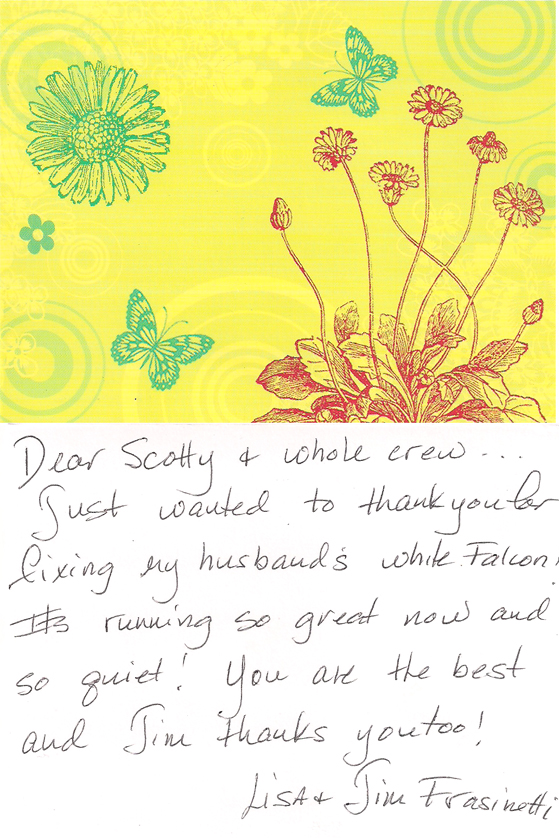 Dear Scotty & whole crew...
Just wanted to thank you for
fixing my husband's white Falcon!
It's running so great now and
so quiet! You are the best
and Jim thanks you too!
Lisa & Jim Frasinetti